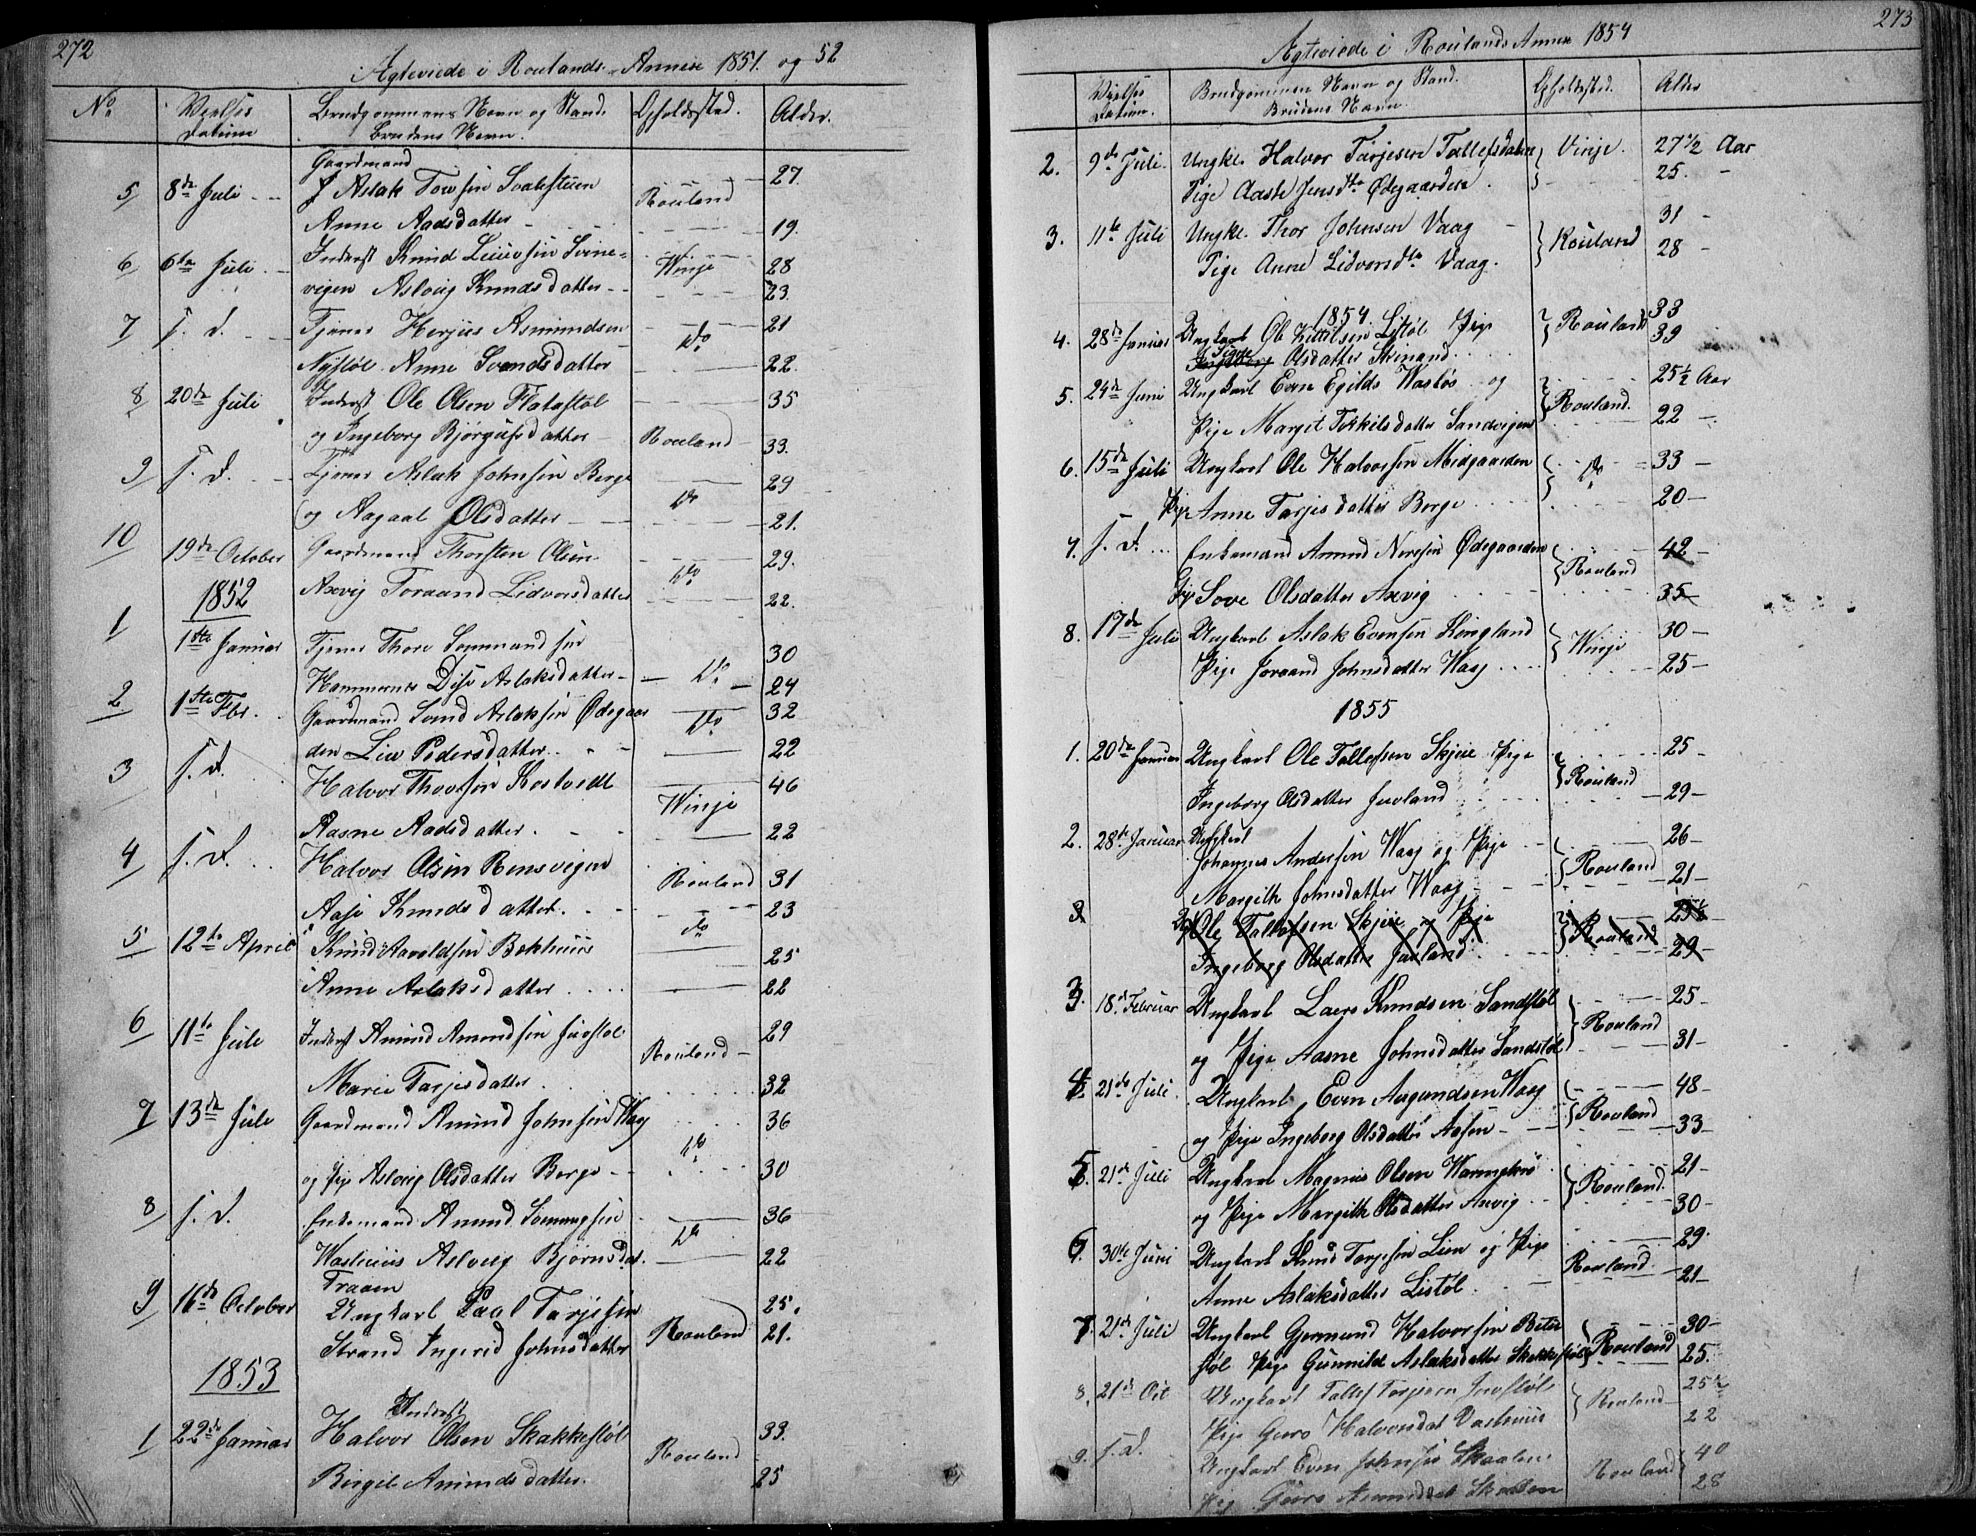 272
Ægteviede i Roulands-Annex 1851. og 52
No
Vielses Datum
Brudgommens Navn og Stand.
Brudens Navn.
Opholdssted.
Alder.
Gaardmand
5 8de Juli Aslak Rouland 27
Anne Aadsdatter 19.
6 6te Juli Inderst Knud Winje 28
vigen Aslaug Knudsdatter 23
7 s. d. Tjener Herjus Asmundsen 21
Nystøl Anne Svendsdatter do 22
8 20de Juli Inderst Ole Olsen Flatastøl 35
og Ingeborg Bjørgufsdatter Rouland 33.
9 s. d. Tjener Aslak Johnsen Berge 29
og Aagaat Olsdatter do 21.
10 19de October Gaardmand Thorsten Olsen 29.
Axvig Toraand Lidvorsdatter do 22.
1852
1 1ste Januar Tjener Thore 30
Dise Aslaksdatter do 24
2 1ste Fbr. Gaardmand Svend Aslaksen Ødegaar 32
den Liv Pedersdatter do 22
3 s. d. Halvor Thovsen Kostvedt 46
Aasne Aadsdatter Winje 22
4 s. d. Halvor Olsen Rensvigen Rouland 31
Aase Knudsdatter 23
5 12te April Knud Aavoldsen Bekhuus do 25
Anne Aslaksdatter 22
6 11te Juli Inderst Amund Amundsen Juvstøl 29
Marie Tarjesdatter Rouland 32
7 13de Juli Gaardmand Amund Johnsen Vaag 36
og Pige Aslaug Olsdatter Berge do 30
8 s. d. Enkemand Amund 36
Vashuus Aslaug Bjørnsdat. do 22
Traaen
9 16de October Ungkarl Paal Tarjesen 25.
Strand Ingerid Johnsdatter Rouland 21.
1853
Inderst
1 22de Januar Halvor Olsen Skakkestøl 33.
Birgit Amundsdatter. Rouland 25
273
Ægteviede i Roulands Annex 1854
Vielses Datum.
Brudgommens Navn og Stand.
Brudens Navn.
Opholdssted.
Alder
2. 9de Juli. Ungk. Halvor Tarjesen Tallefsdalen Vinje. 27 1/2 Aar
Pige Aaste Jensdtr Ødegaarden. 25. -
3. 11te Juli Ungk. Thor Johnsen Vaag 31 -
Pige Anne Lidvorsdtr Vaag. Rouland 28 -
1854.
4. 28de Januar Ungkarl Ole Kittilsen Listøl Pige Rouland 33
Signe
Ingeborg Olsdatter 39
5. 24de Juni Ungkarl Even Egilds Vasløs og 25 1/2 Aar
Pige Margit Torkilsdatter Sandvigen Rouland. 22 -
6. 15de Juli Ungkarl Ole Halvorsen Midgaarden do 33 -
Pige Anne Tarjesdatter Berge 20 -
7. s. d. Enkemand Amund Nersen Ødegaarden 42 -
Pige Sove Olsdatter Axvig Rouland 35 -
8. 17de Juli Ungkarl Aslak Evensen Kongland 30 -
Pige Joraand Johnsdatter Vaag Winje 25 -
1855
1. 20de Januar Ungkarl Ole Tallefsen Skjeie Pige 25 -
Ingeborg Olsdatter Juvland Rouland 29 -
2. 28de Januar Ungkarl 26 -
Johannes Andersen Vaag og Pige
Margith Johnsdatter Vaag Rouland 21 -
3 Ole Tallefsen Skjeie og Pige 25 1/2
Ingeborg Olsdatter Juvland Rouland 29 -
3. 18de Februar Ungkarl Laers Knudsen Sandstøl 25 -
og Pige Aasne Johnsdatter Sandstøl Rouland 31 -
4. 21de Juli. Ungkarl Even Aagundsen Vaag 48 -
og Pige Ingeborg Olsdatter Aasen Rouland 33 -
5 21de Juli Ungkarl Magnus Olsen 21 -
og Pige Margith Olsdatter Axvig Rouland. 30 -
6. 30te Juni Ungkarl Knud Tarjesen Lien og Pige 29.
Anne Aslaksdatter Listøl. Rouland. 21 -
7. 21de Juli Ungkarl Gjermund Halvorsen Biter 30 -
støl Pige Gunnild Aslaksdatter Skakkestøl Rouland 25.
8. 21de Oct Ungkarl Tallef Tarjesen Juvstøl 25 1/2
Pige Guro Halvorsdat Vashuus Rouland 22
9. s. d. Ungkarl Even Johnsen Skaalen 40
Pige Guro Amundsdat Skaalen Rouland 28